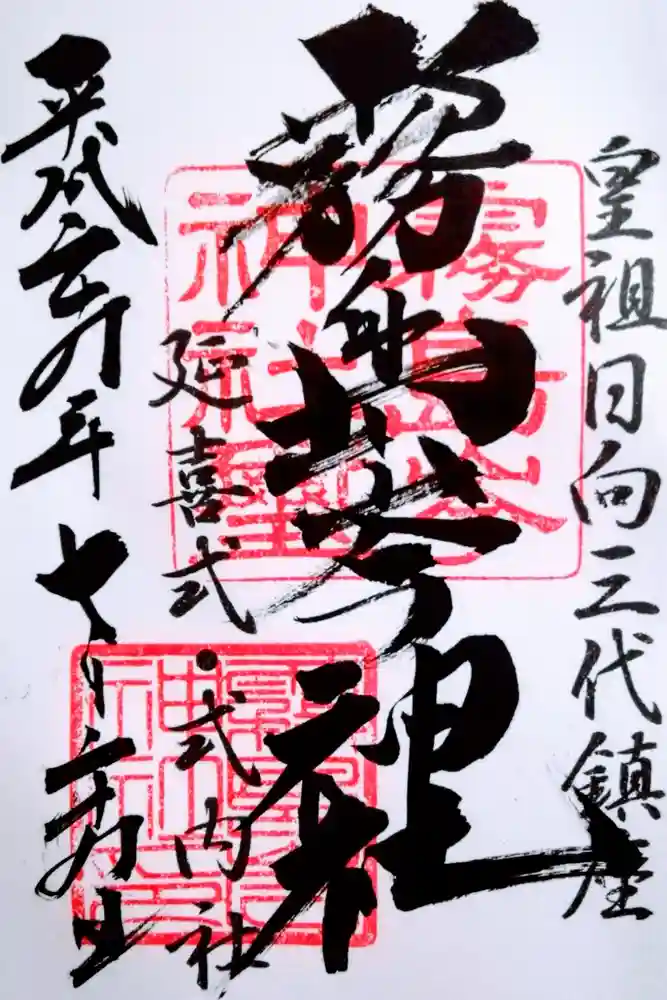 皇祖日向三代鎮座
霧島岑神社
霧島岑
神社璽
延喜式・式内社
平成二十九年七月二十九日